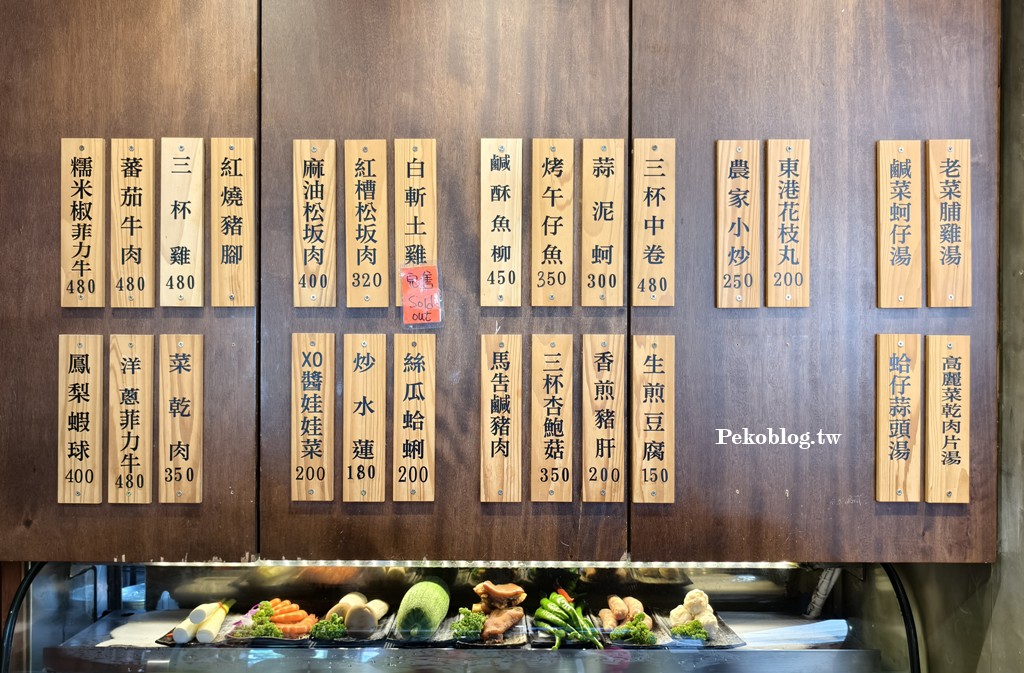 糯米椒菲力牛 480
蕃茄牛肉 480
三杯雞 480
紅燒豬腳
麻油松坂肉 400
紅槽松坂肉 320
白斬土雞
完售
Sold out
鹹酥魚柳 450
烤午仔魚 350
蒜泥蚵 300
三杯中卷 480
農家小炒 250
東港花枝丸 200
鹹菜蚵仔湯
老菜脯雞湯
鳳梨蝦球 400
洋蔥菲力牛 480
菜乾肉 350
XO醬娃娃菜 200
炒水蓮 180
絲瓜蛤蜊 200
馬告鹹豬肉
三杯杏鮑菇 350
香煎豬肝 200
生煎豆腐 150
蛤仔蒜頭湯
高麗菜乾肉片湯
Pekoblog.tw